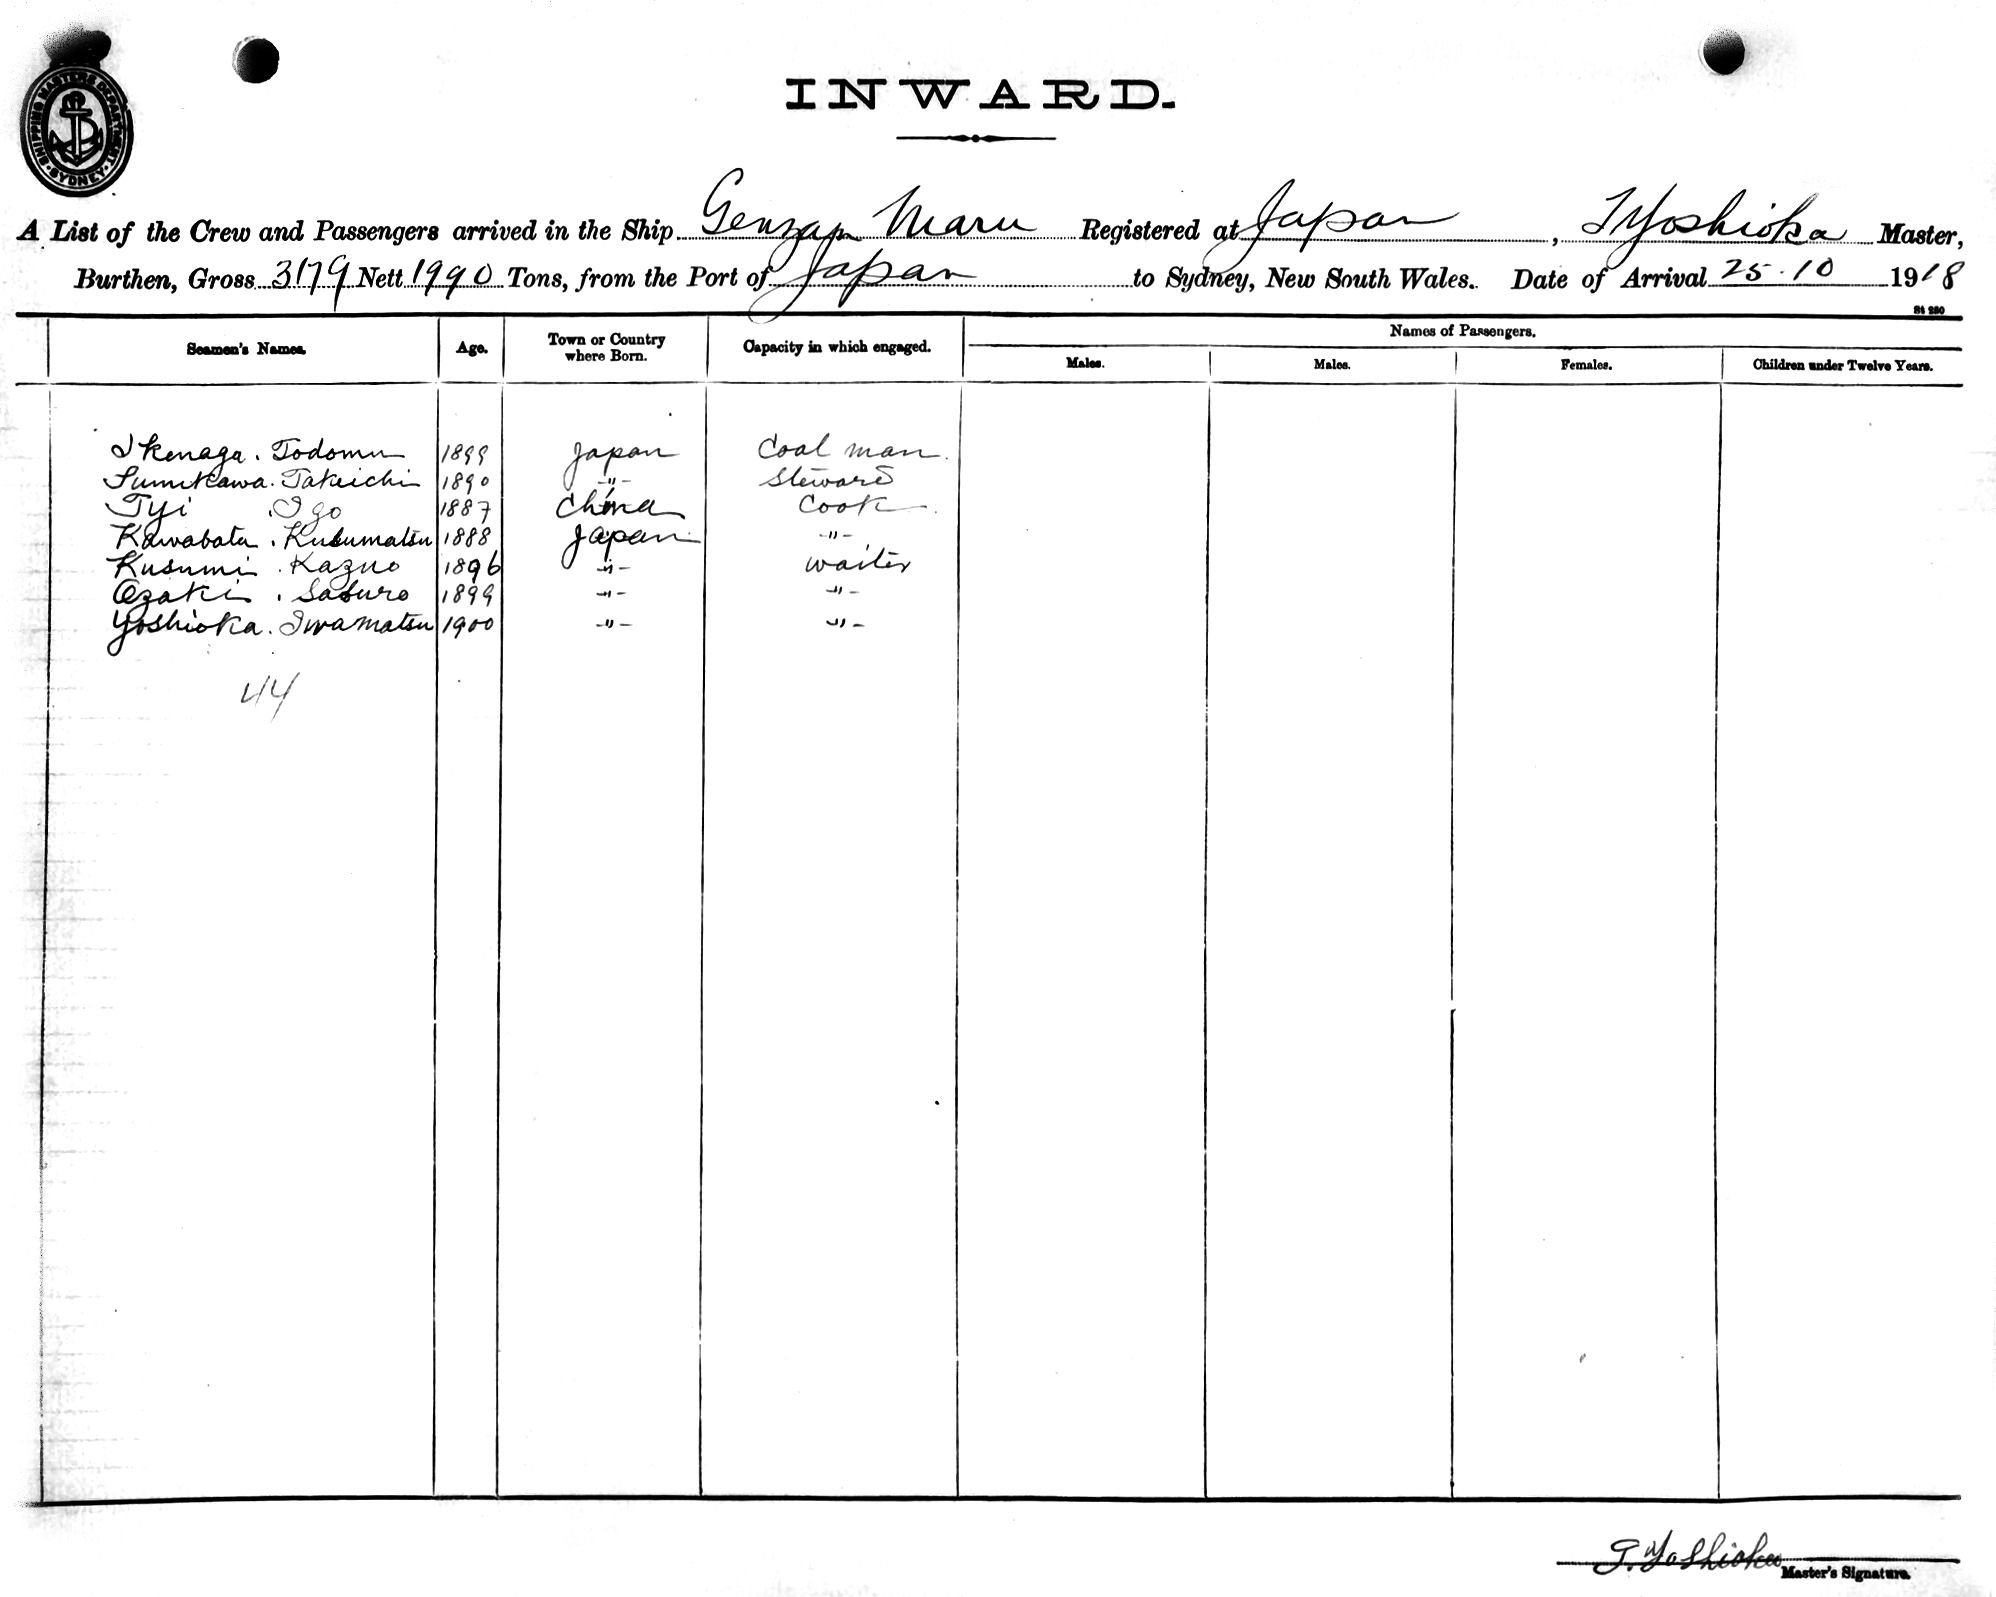 SHIPPING MASTERS DEPARTMENT SYDNEY
INWARD.
A List of the Crew and Passengers arrived in the Ship Genzan Maru Registered at Japan, T Yoshioka Master,
Burthen, Gross 3179 Nett 1990 Tons, from the Port of Japan to Sydney, New South Wales. Date of Arrival 25.10 1918
St 280
Seamen's Names. Age. Town or Country where Born. Capacity in which engaged. Names of Passengers.
Males. Males. Females. Children under Twelve Years.
Ikenaga . Todomu 1899 Japan Coal man.
Sumikawa . Takeichi 1890 -"- Steward
Tyi . Igo 1887 China Cook
Kawabata . Kusumatsu 1888 Japan -"-
Kusumi . Kazuo 1896 -"- waiter
Ozaki . Saburo 1899 -"- -"-
Yoshioka . Iwamatsu 1900 -"- -"-
44
T. Yoshioka
Master's Signature.